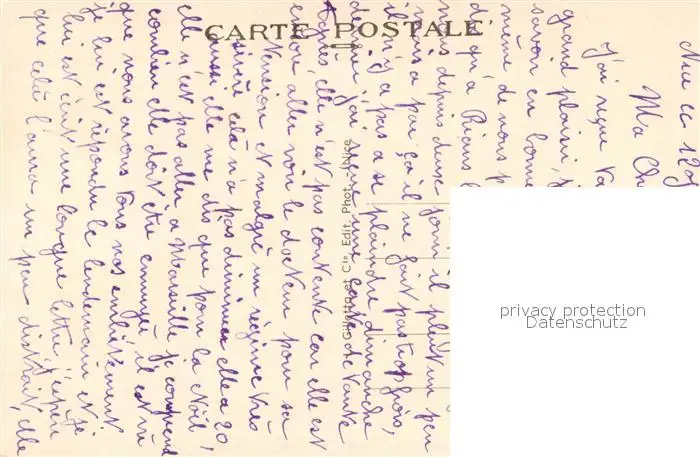 CARTE POSTALE
Gilletta et Cie, Edit. Phot. - Nice
privacy protection
Datenschutz
Nice le
Ma Ch
J'ai reçu ta
grand plaisir, j
savoir en bonne
même de nous p
d qu'a Rians
mais depuis deux jours il pleut un peu
mais a par ça il ne fait pas trop froid,
il n'y a pas a se plaindre, dimanche
dernier j'ai reçu une carte de tante
elle n'est pas contente car elle est
allée voir le docteur pour sa
tension et malgré un régime très
sévère cela n'a pas diminuer elle a 20
aussi elle me dis que pour la Noël,
elle n'est pas aller a Marseille je comprend
combien elle doit être ennuyée il est vrai
que nous avons tous nos embêtement
je lui est répondu le lendemain et je
lui est écrit une longue lettre j'espère
que celà l'aura un peu distrait, elle